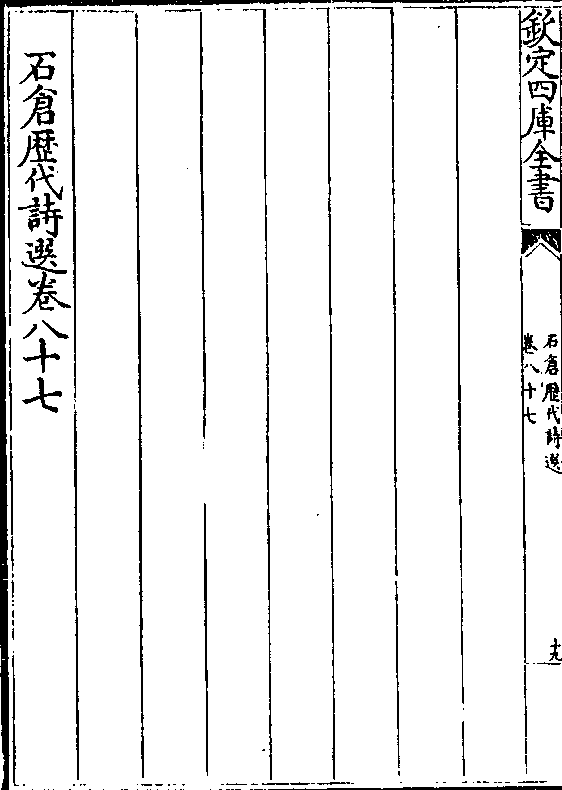 欽定四庫全書
石倉歷代詩選
卷八十七
十九
石倉歷代詩選卷八十七